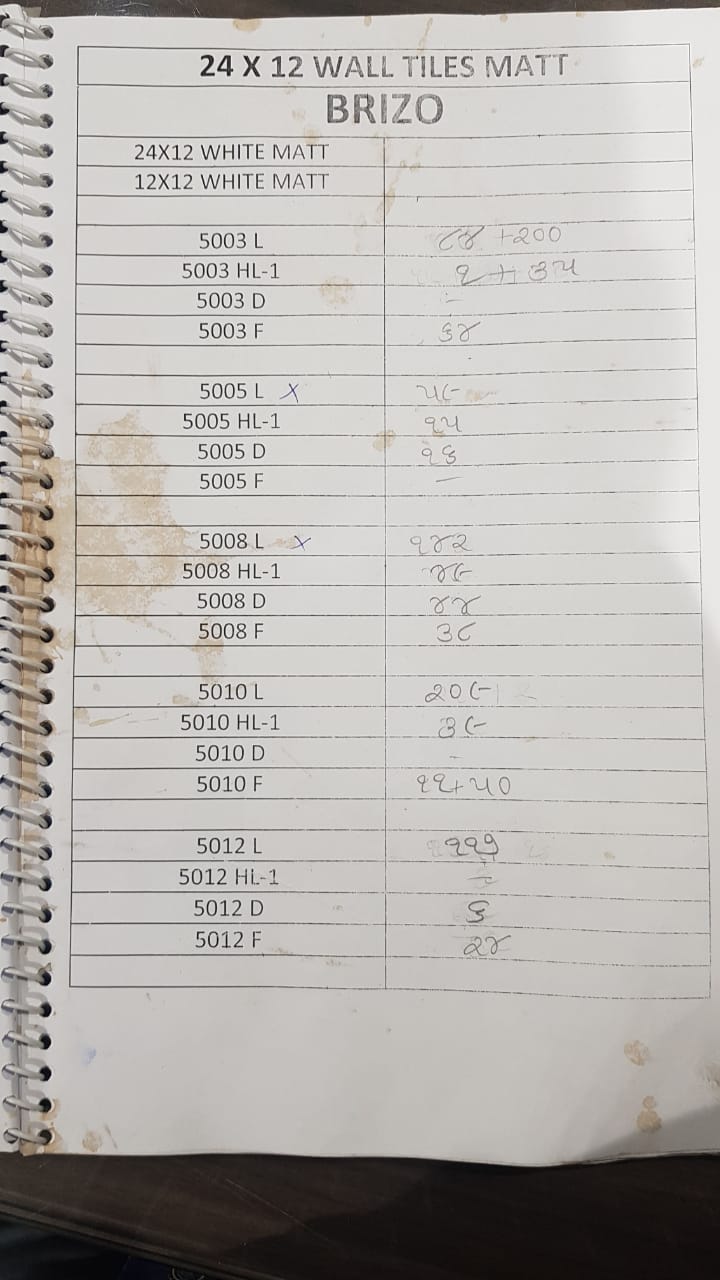 24 X 12 WALL TILES MATT
BRIZO
24X12 WHITE MATT
12X12 WHITE MATT
5003 L ૮૪ +૨૦૦
5003 HL-1 ૧ + ૩૫
5003 D -
5003 F ૬૪
5005 L X ૫૯
5005 HL-1 ૧૫
5005 D ૧૬
5005 F —
5008 L X ૧૪૨
5008 HL-1 ૪૯
5008 D ૪૪
5008 F ૩૮
5010 L ૨૦૯
5010 HL-1 ૩૯
5010 D -
5010 F ૧૧+૫૦
5012 L ૧૧૭
5012 HL-1 -
5012 D ૬
5012 F ૨૪